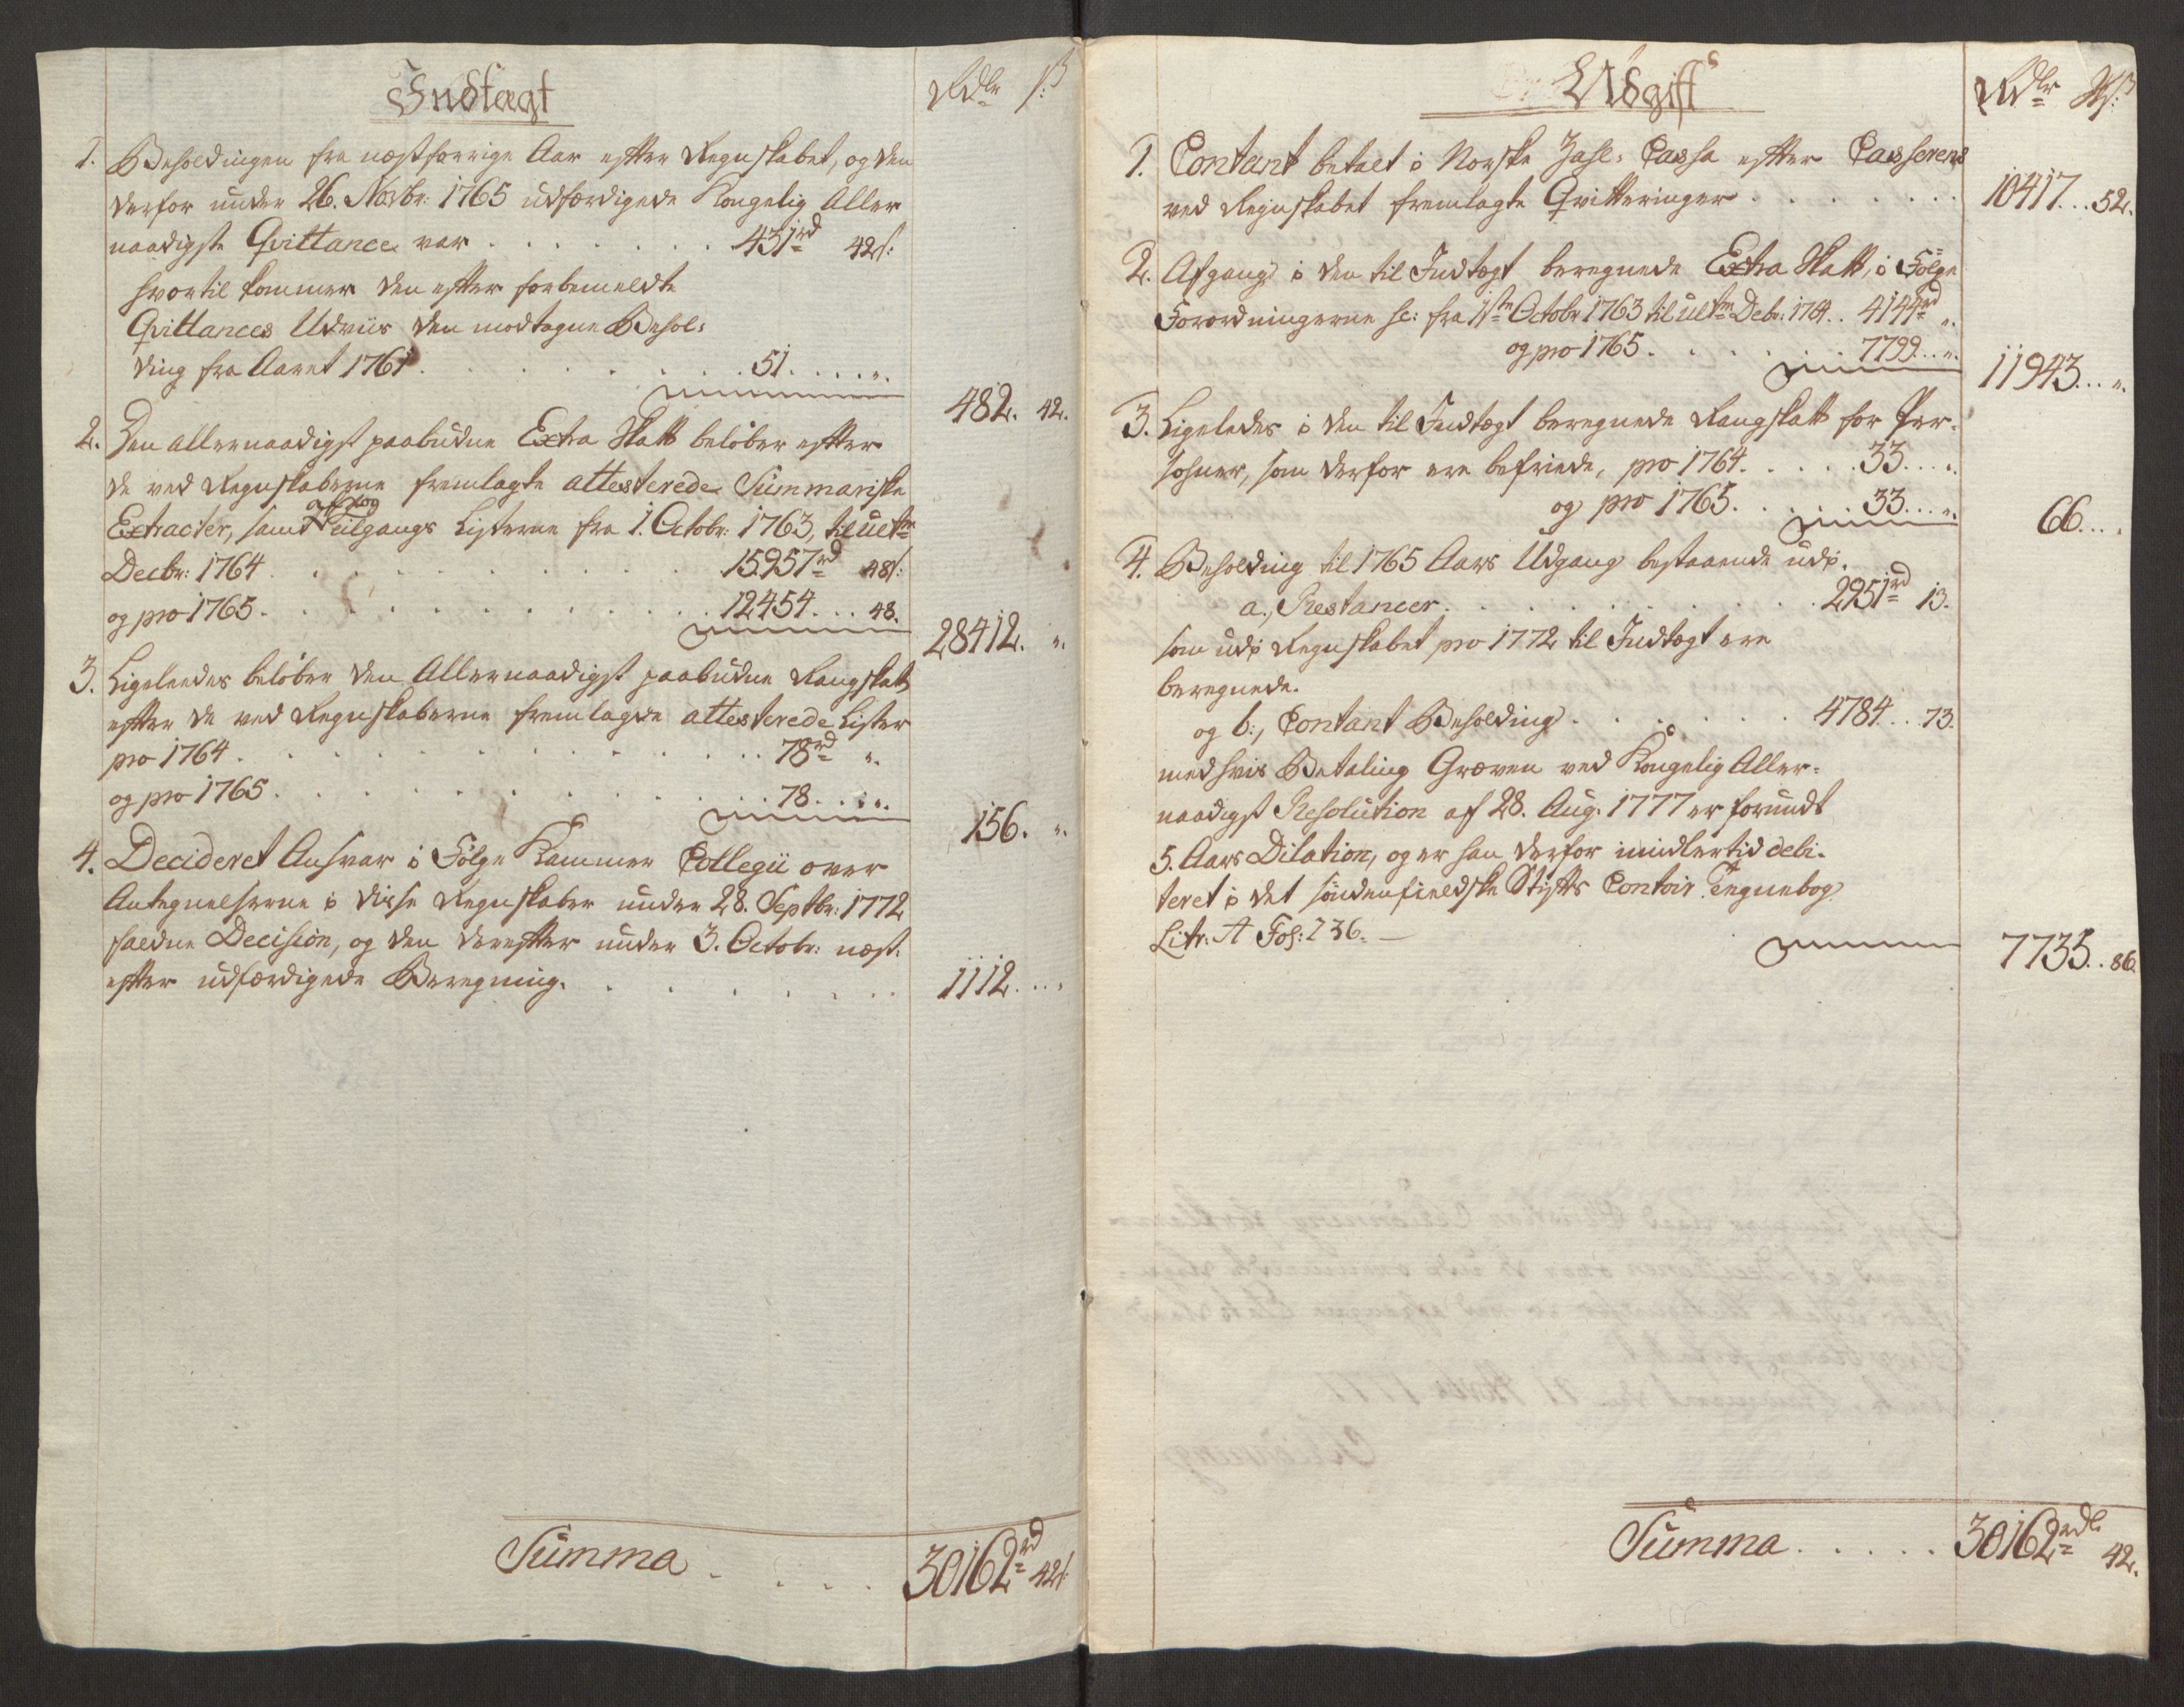 Indtægt
Rdlr ß:
1. Beholdingen fra næstforrige Aar efter Regnskabet, og den
derfor under 26. Novbr: 1765 udfærdigede Kongelig Aller
naadigste Qvittance var . . . . . . . 431rd 42ß:
hvortil kommer den efter forbemeldte
Qvittances Udviis den modtagne Behol-
ding fra Aaret 1761 . . . . . . . . . 51. . . . ".
482. 42.
2. Den allernaadigst paabudne Extra Skatt beløber efter
de ved Regnskaberne fremlagte attesterede Summariske
af og
Extracter, samt Tilgangs Listerne fra 1. Octobr: 1763, til ultm
Decbr: 1764 . . . . . . . . . . 15957rd 48ß:
og pro 1765 . . . . . . . . . . 12454. . . 48.
28412. ".
3. Ligeleedes beløber den Allernaadigst paabudne Rangskatt
efter de ved Regnskaberne fremlagde attesterede Lister
pro 1764 . . . . . . . . . . . 78rd ".
og pro 1765 . . . . . . . . . . . 78. . . ".
156. ".
4. Decideret Ansvar i Følge Kammer Collegii over
Antegnelserne i disse Regnskaber under 28. Septbr: 1772
faldne Decision, og den derefter under 3. Octobr: næst-
efter udfærdigede Beregning. . . . . . . .
1112. . . .
Summa . . . . 30162rd 42ß:
Udgift
Rdlr Sß:
1. Contant betalt i Norske Zahl-Cassa efter Casserens
ved Regnskabet fremlagte Qvitteringer . . . . . . . 10417. . . 52.
2. Afgang i den til Indtægt beregnede Extra Skatt, i Følge
Forordningerne sc: fra 1ste Octobr 1763 til ultm Debr: 1764. . 4144rd ".
og pro 1765. . . . . . 7799. . . ".
11943. . . ".
3. Ligeledes i den til Indtægt beregnede Rangskatt for Per-
sohner, som derfor ere befriede, pro 1764. . . . . 33. . . ".
og pro 1765. . . . . 33. . . ".
66. . . .
4. Beholding til 1765 Aars Udgang bestaaende udi.
a., Restancer. . . . . . . . . . 2951rd 13.
som udi Regnskabet pro 1772 til Indtægt ere
beregnede.
og b:, Contant Beholding . . . . . . 4784. . 73.
med hvis Betaling Græven ved Kongelig Aller-
naadigst Resolution af 28. Aug. 1777 er forundt
5. Aars Dilation, og er han derfor imidlertid debi-
teret i det søndenfieldske Stifts Contoir Tegnebog
Litr: A Fol: 236. —
7735. . 86.
Summa . . . . . 30162rdl. 42.